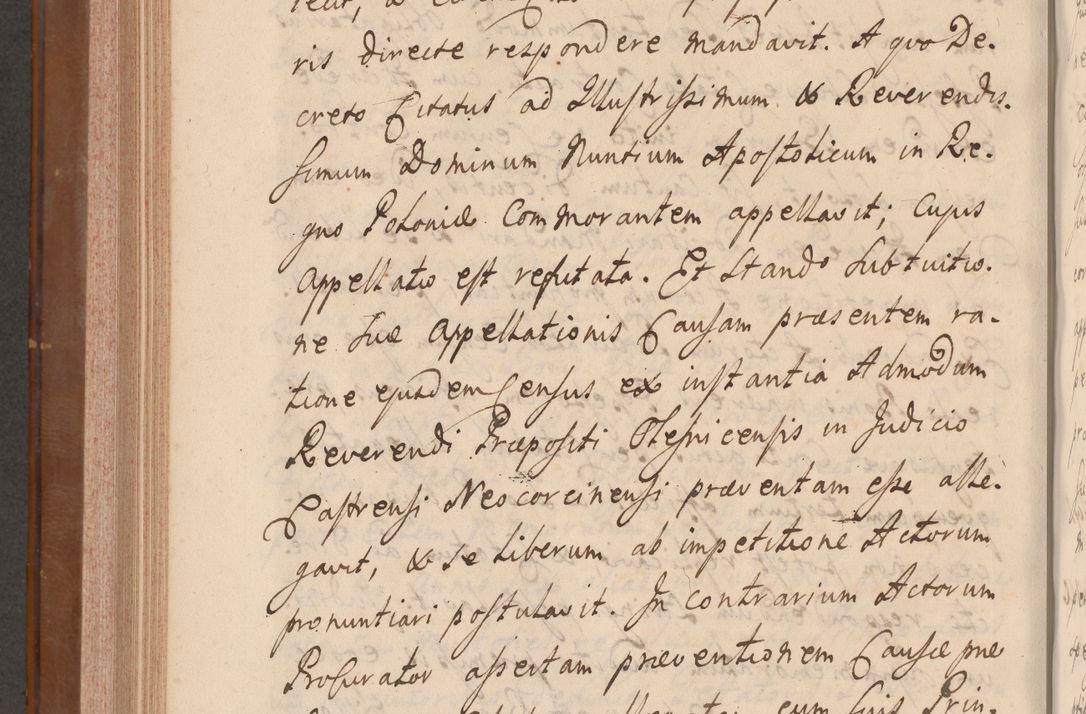 ris directe respondere mandavit. A quo De-
creto Citatus ad Illustrissimum & Reverendis-
simum Dominum Nuntium Apostolicum in Re-
gno Poloniæ Commorantem appellavit; Cujus
Appellatio est refutata. Et Stando Sub tuitio-
ne Suæ Appellationis Causam præsentem ra-
tione ejusdem Census ex instantia Admodum
Reverendi Præpositi Olesnicensis in Judicio
Castrensi Neocorcinensi præventam esse alle-
gavit, & se Liberum ab impetitione Actorum
pronuntiari postulavit. In contrarium Actorum
Procurator assertam præventionem Causæ præ
cum Suis Prin-